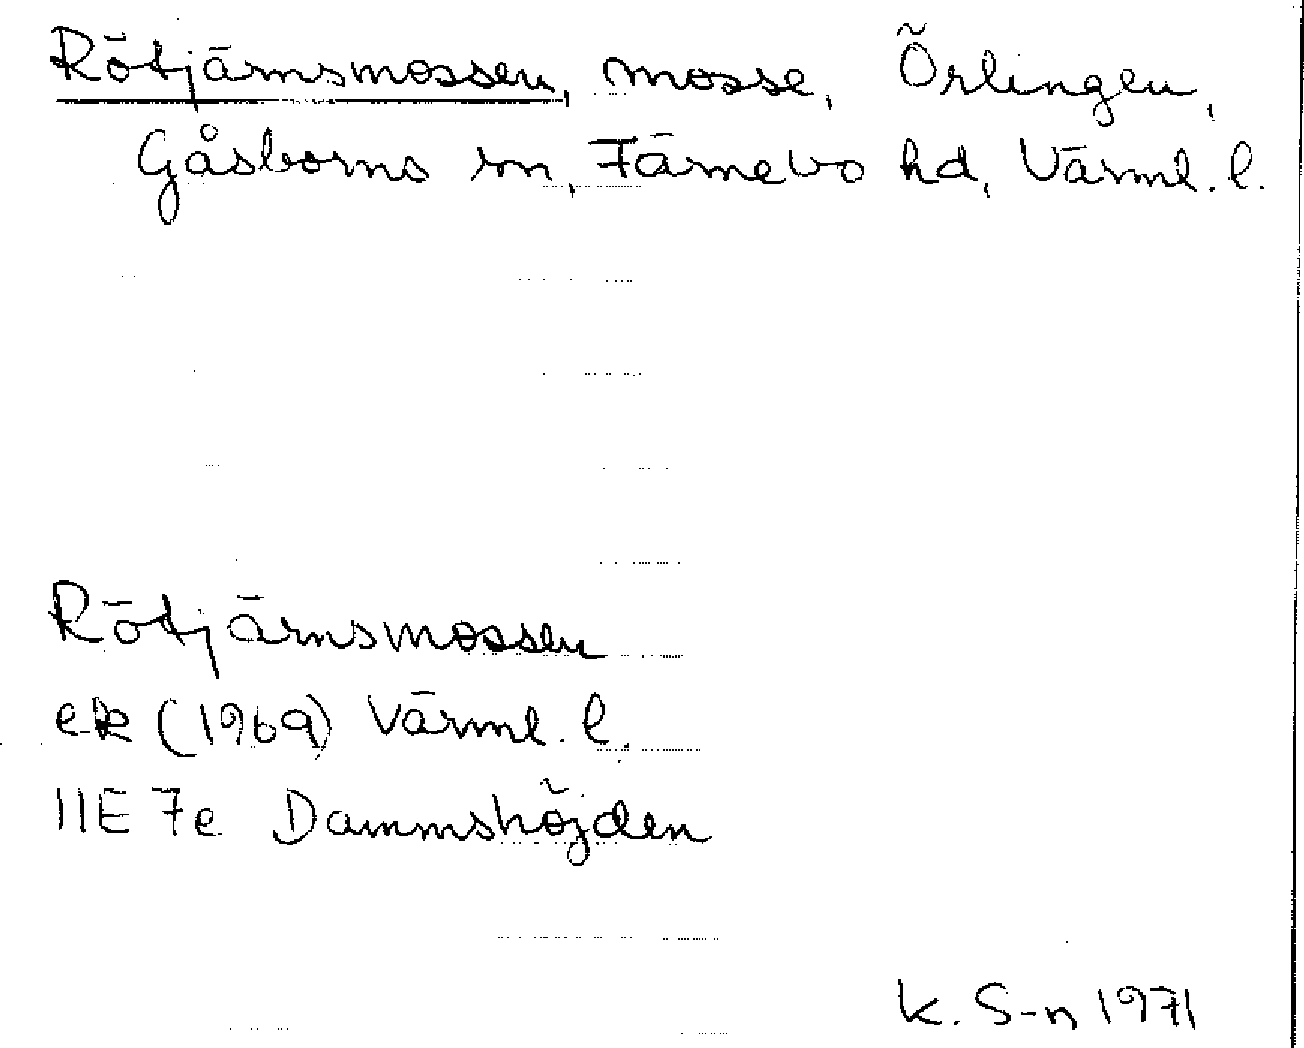 Rötjärnsmossen, mosse, Örlingen,
Gåsborns sn, Färnebo hd, Värml. l.
Rötjärnsmossen
ek (1969) Värml. l.
11E 7e Dammshöjden
K. S-n 1971